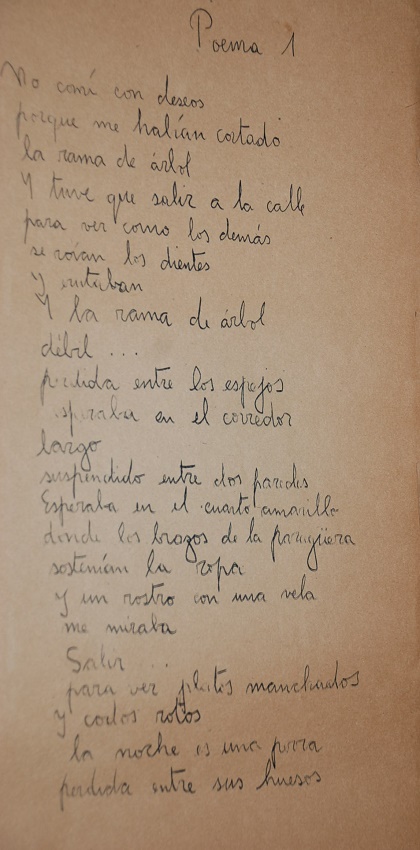 Poema 1
No comí con deseos
porque me habían cortado
la rama de árbol
y tuve que salir a la calle
para ver como los demás
se roían los dientes
y eructaban
Y la rama de árbol
débil ...
perdida entre los espejos
esperaba en el corredor
largo
suspendido entre dos paredes
Esperaba en el cuarto amarillo
donde los brazos de la paragüera
sostenían la ropa
y un rostro con una vela
me miraba
Salir ...
para ver platos manchados
y codos rotos
la noche es una perra
perdida entre sus huesos